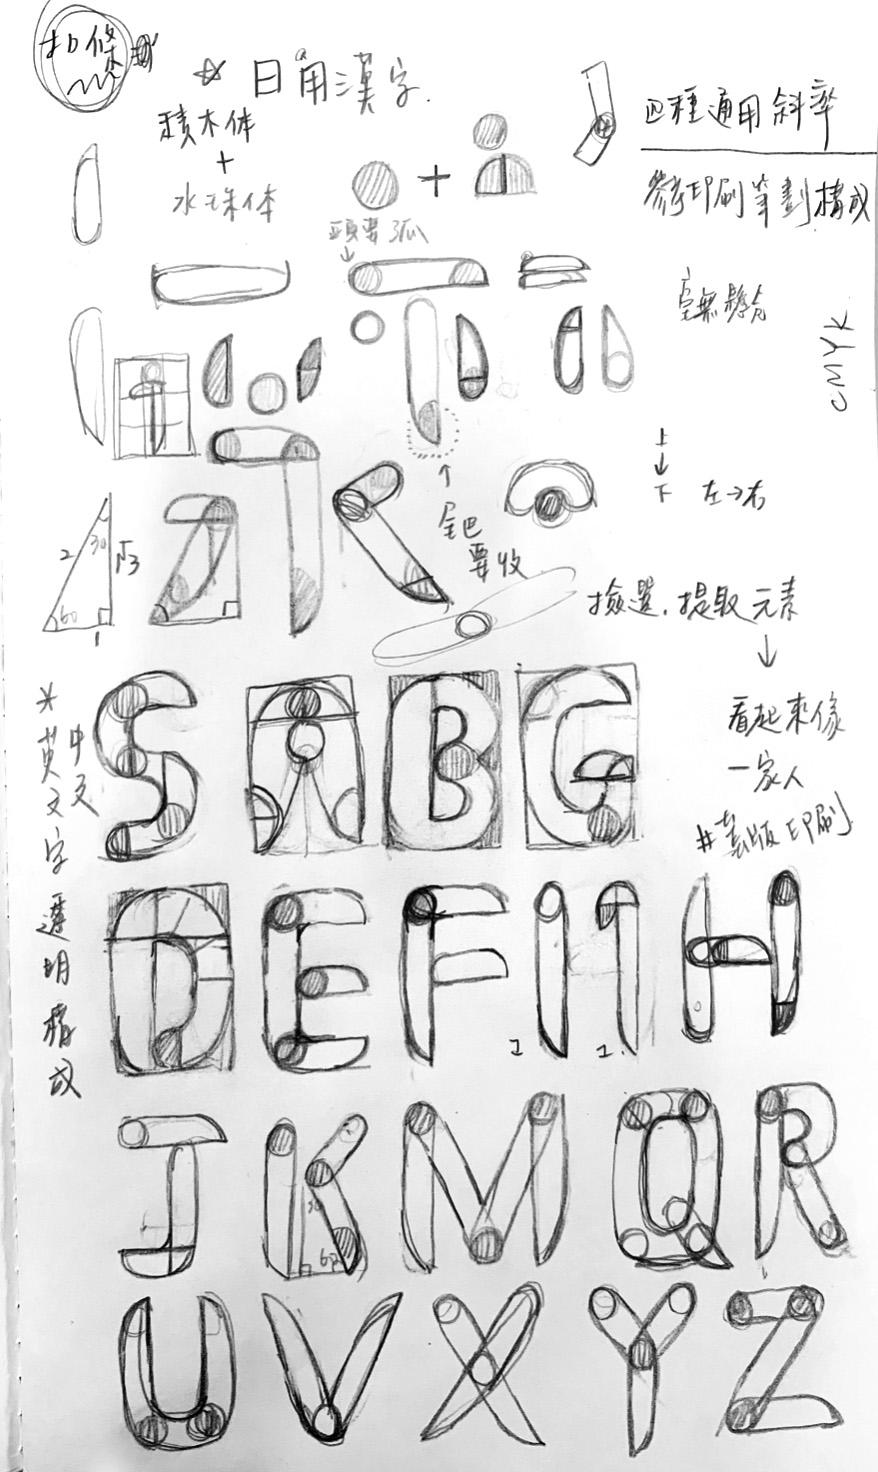 ☆ 日用漢字.
積木体
+
水珠体
+
四種通用斜率
參考印刷筆劃構成
頭要弧
CMYK
上
↓
下
左→右
↑
尾巴
要收
2
30
√3
60
1
撿選.提取元素
↓
看起來像
一家人
#套版印刷
*中文
英文字透明構成
S A B G
D E F 1 1 H
1 1.
J K M Q R
30
60
U V X Y Z